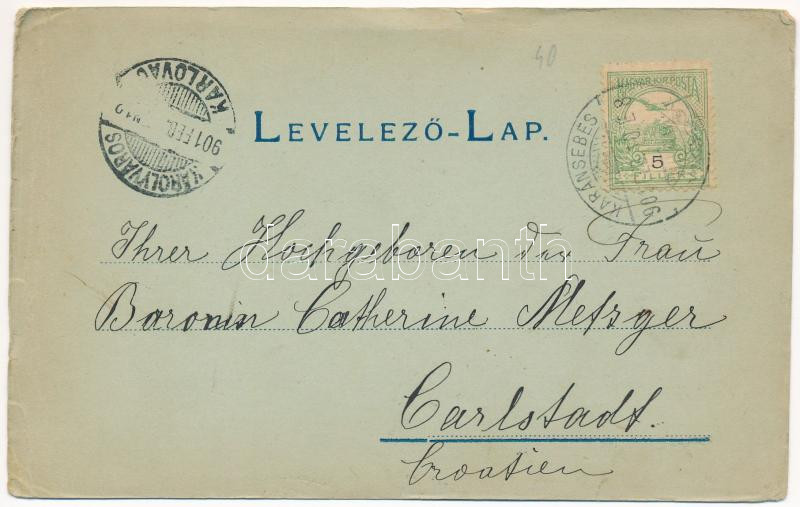 40
KÁRLOVAC
901 FEB.
KÁROLYVÁROS
LEVELEZŐ-LAP.
MAGYAR KIR. POSTA
5
FILLÉR
KARÁNSEBES
Ihrer Hochgeboren der Frau
darabanth
Baronin Catherine Metzger
Carlstadt.
Croatien